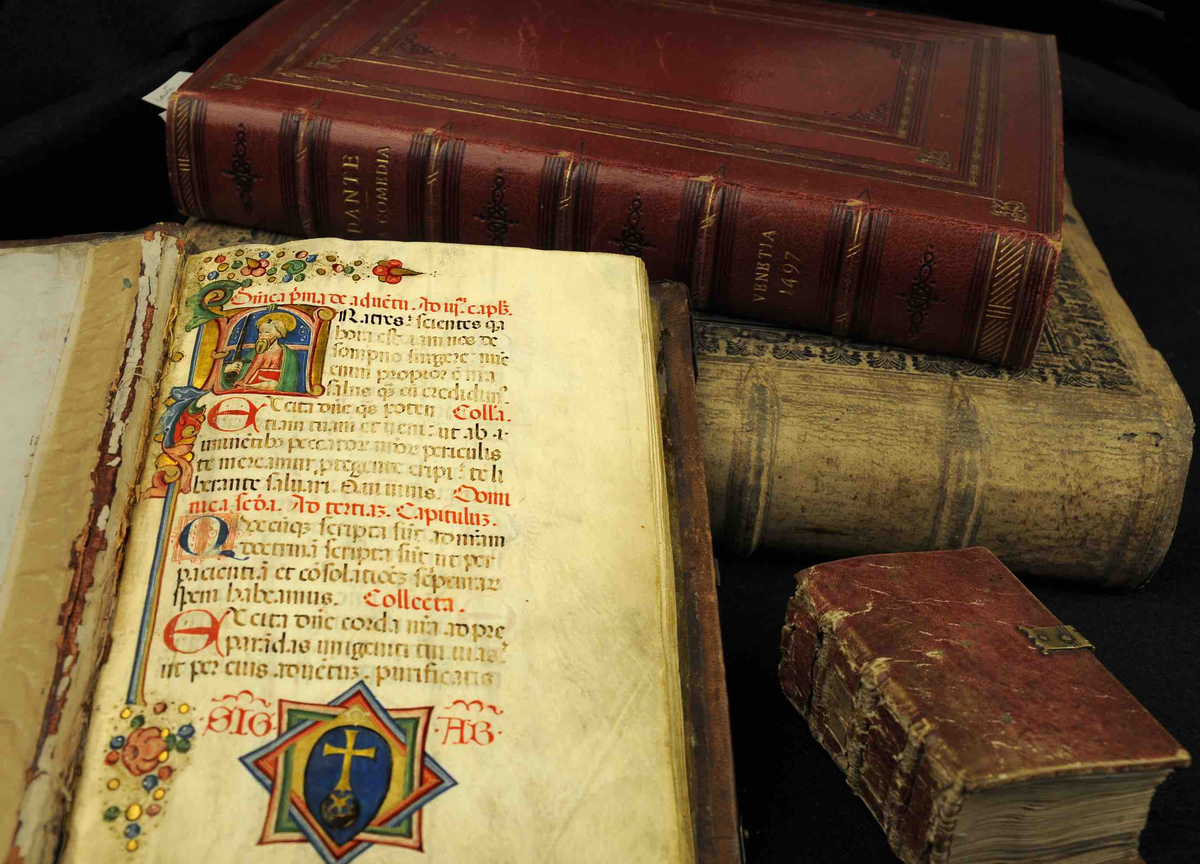 DANTE
A COMEDIA
VENETIA
1497
Dmica p̄ma de aduētu. Ad vs̄. capl̄.
Ratres: scientes qa
hora est iam nos de
sompno surgere: nūc
enim propior ē nr̄a
salus qȝ cū credidim⁹.
Excita dn̄e qs̄ poten Coll'a.
tiam tuam et ueni: ut ab i
minētibȝ peccatorȝ nr̄orȝ periculis
te mereamur ptegente eripi: te li
berante saluari. Qui uiuis. Domi
nica scd̄a. Ad tertiaȝ. Capituluȝ.
Quecūqȝ scripta sūt ad nr̄am
doctrinā scripta sūt ut per
pacientiā et cōsolationeȝ sc̄pturarȝ
spem habeamus. Collecta.
Excita dn̄e corda nr̄a ad pre
parādas unigeniti tui uias:
ut per eius aduētuȝ. purificatis
SIG AB